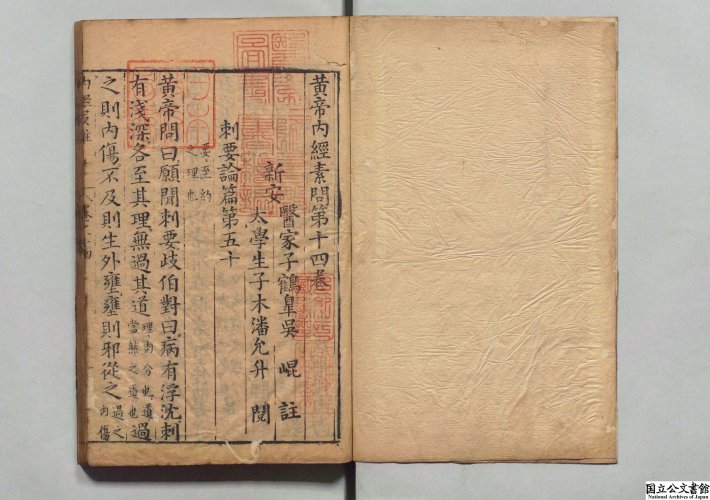 黄帝内經素問第十四卷
新安
醫家子鶴臯吳 崐 註
太學生子木潘允升 閱
刺要論篇第五十
要至約
之理也
黄帝問曰願聞刺要歧伯對曰病有浮沈刺
有淺深各至其理無過其道
理肉分也道
當然之道也
過
之則内傷不及則生外壅壅則邪從之
過之
内傷
国立公文書館
National Archives of Japan